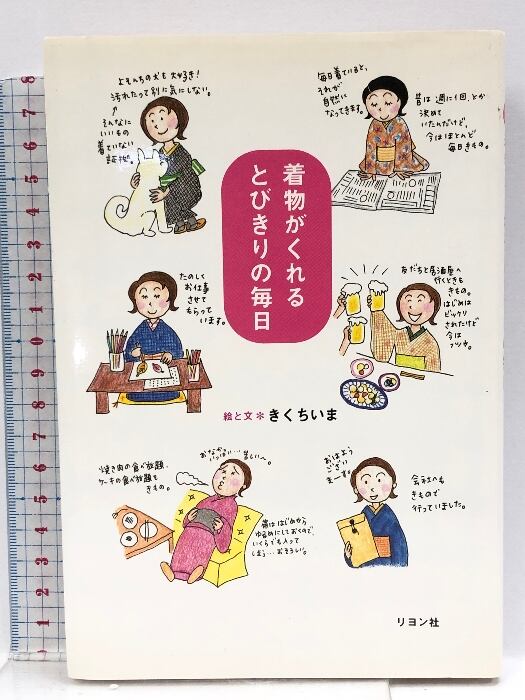 よそんちの犬も大好き!
汚れたって別に気にしない。
そんなに
いいもの
着ていない
毎日着ていると、
それが
自然に
なってきます。
昔は週に1回とか
決めて
いたんだけど、
今はほとんど
毎日きもの。
着物がくれる
とびきりの毎日
たのしく
お仕事
させて
もらって
います。
友だちと居酒屋へ
行くときも
きもの。
はじめは
ビックリ
されたけど
今は
フツウ。
絵と文＊きくちいま
焼き肉の食べ放題、
ケーキの食べ放題も
きもの。
おなか
いっぱい…苦しい〜。
帯ははじめから
ゆるめにしておくので、
いくらでも入って
しまう…おそろしい。
おはよう
ござい
まーす。
会社へも
きもので
行っていました。
リヨン社